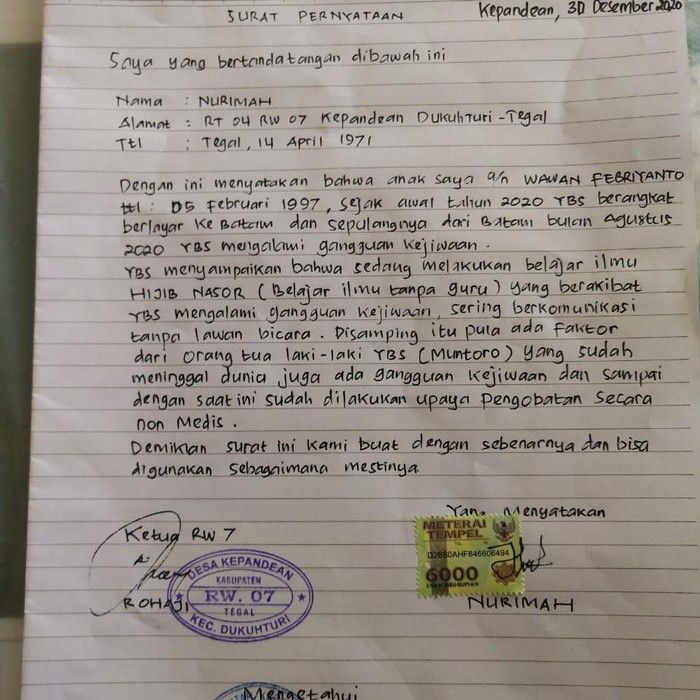 SURAT PERNYATAAN
Kepandean, 30 Desember 2020
Saya yang bertandatangan dibawah ini
Nama : NURIMAH
Alamat : RT 04 RW 07 Kepandean Dukuhturi - Tegal
Ttl : Tegal, 14 April 1971
Dengan ini menyatakan bahwa anak saya a/n WAWAN FEBRIYANTO
ttl : 05 Februari 1997, sejak awal tahun 2020 YBS berangkat
berlayar ke Batam dan sepulangnya dari Batam bulan Agustus
2020 YBS mengalami gangguan kejiwaan.
YBS menyampaikan bahwa sedang melakukan belajar ilmu
HIJIB NASOR (Belajar ilmu tanpa guru) yang berakibat
YBS mengalami gangguan kejiwaan, sering berkomunikasi
tanpa lawan bicara. Disamping itu pula ada faktor
dari orang tua laki-laki YBS (Muntoro) yang sudah
meninggal dunia juga ada gangguan kejiwaan dan sampai
dengan saat ini sudah dilakukan upaya pengobatan secara
non Medis.
Demikian surat ini kami buat dengan sebenarnya dan bisa
digunakan sebagaimana mestinya
Yang Menyatakan
Ketua RW 7
METERAI
TEMPEL
D2B60AHF846606494
6000
ENAM RIBU RUPIAH
DESA KEPANDEAN
KABUPATEN
RW. 07
TEGAL
KEC. DUKUHTURI
ROHAJI
NURIMAH
Mengetahui